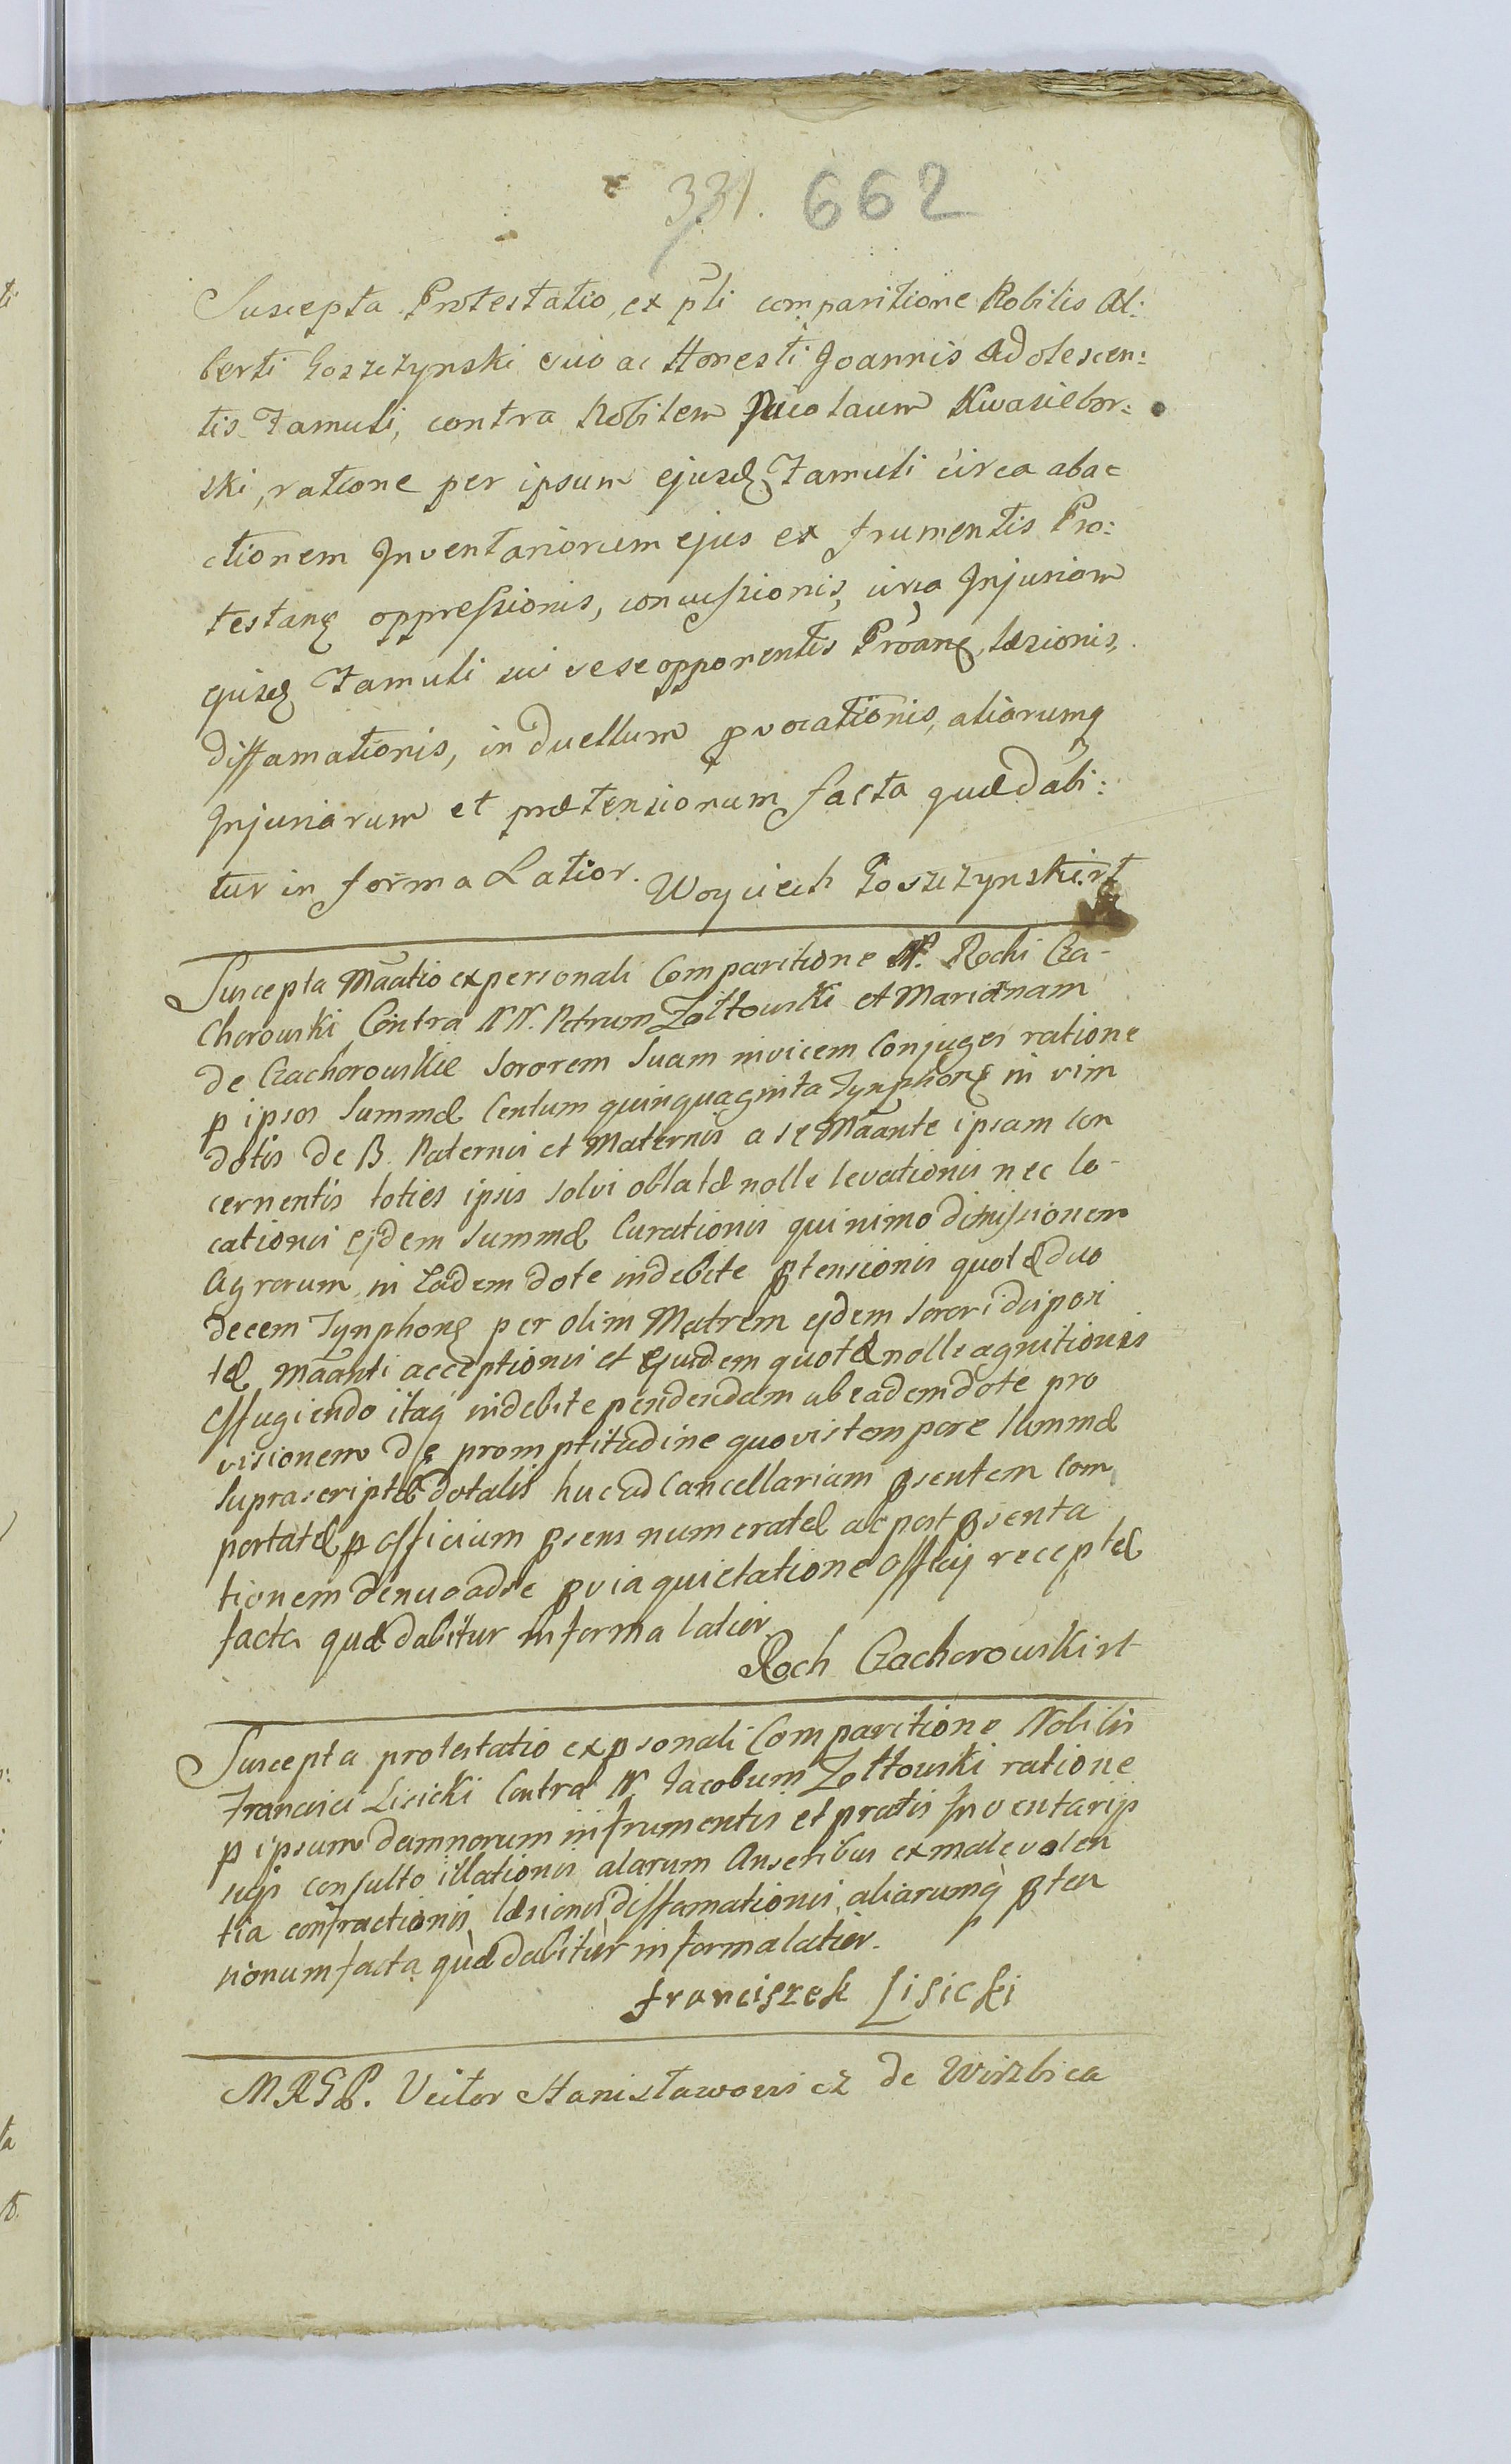 331. 662
Suscepta Protestatio, ex pli comparitione Nobilis Al:
berti Goszczynski suo ac Honesti Joannis Adolescen:
tis Famuli, contra Nobilem Nicolaum Kwasiebor:
ski, ratione per ipsum ejusd Famuli circa abac
ctionem Inventariorum ejus ex frumentis Pro:
testang oppressionis, concussionis, circa Injuriam
ejusd Famuli sui se se opponentis Proang, læsionis,
diffamationis, in duellum pvocationis, aliorumq
Injuriarum et prætensionum facta quæ dabi:
tur in forma Latior. Woyciech Goszczynski rt
Suscepta Maatio ex personali Comparitione N. Rochi Cza-
chorowski Contra NN. Petrum Zołtowski et Mariannam
de Czachorowskie Sororem Suam invicem Conjuges ratione
p ipsos Summæ Centum quinquaginta Tynphong in vim
dotis de B. Paternis et Maternis a se Maante ipsam con
cernentis toties ipsis solvi oblatæ nolle levationis nec lo-
cationis ejdem Summæ Curationis quinimo dimissionem
Agrorum in Eadem dote indebite ptensionis quotæ duo
decem Tynphong per olim Matrem ejdem Sorori deposi
tæ Maanti acceptionis et Ejusdem quotæ nolle agnitionis
Effugiendo itaq indebite pendendam ab eadem dote pro
visionem de promptitudine quovis tempore Summæ
Suprascriptæ dotalis huc ad Cancellariam psentem Com
portatæ p officium psens numeratæ ac post psenta
tionem denuo ad se pvia quietatione Officij receptæ
facta quæ dabitur in forma latior.
Roch Czachorowski rt
Suscepta protestatio ex psonali Comparitione Nobilis
Francisci Lisicki Contra N. Jacobum Zołtowski ratione
p ipsum damnorum in frumentis et pratis Inventarijs
suis consulto illationis alarum Anseribus ex malevolen
tia confractionis læsionis diffamationis aliarumq pten
sionum facta quæ dabitur in forma latior.
Franciszek Lisicki
Stanisławowicz de Wirzbica